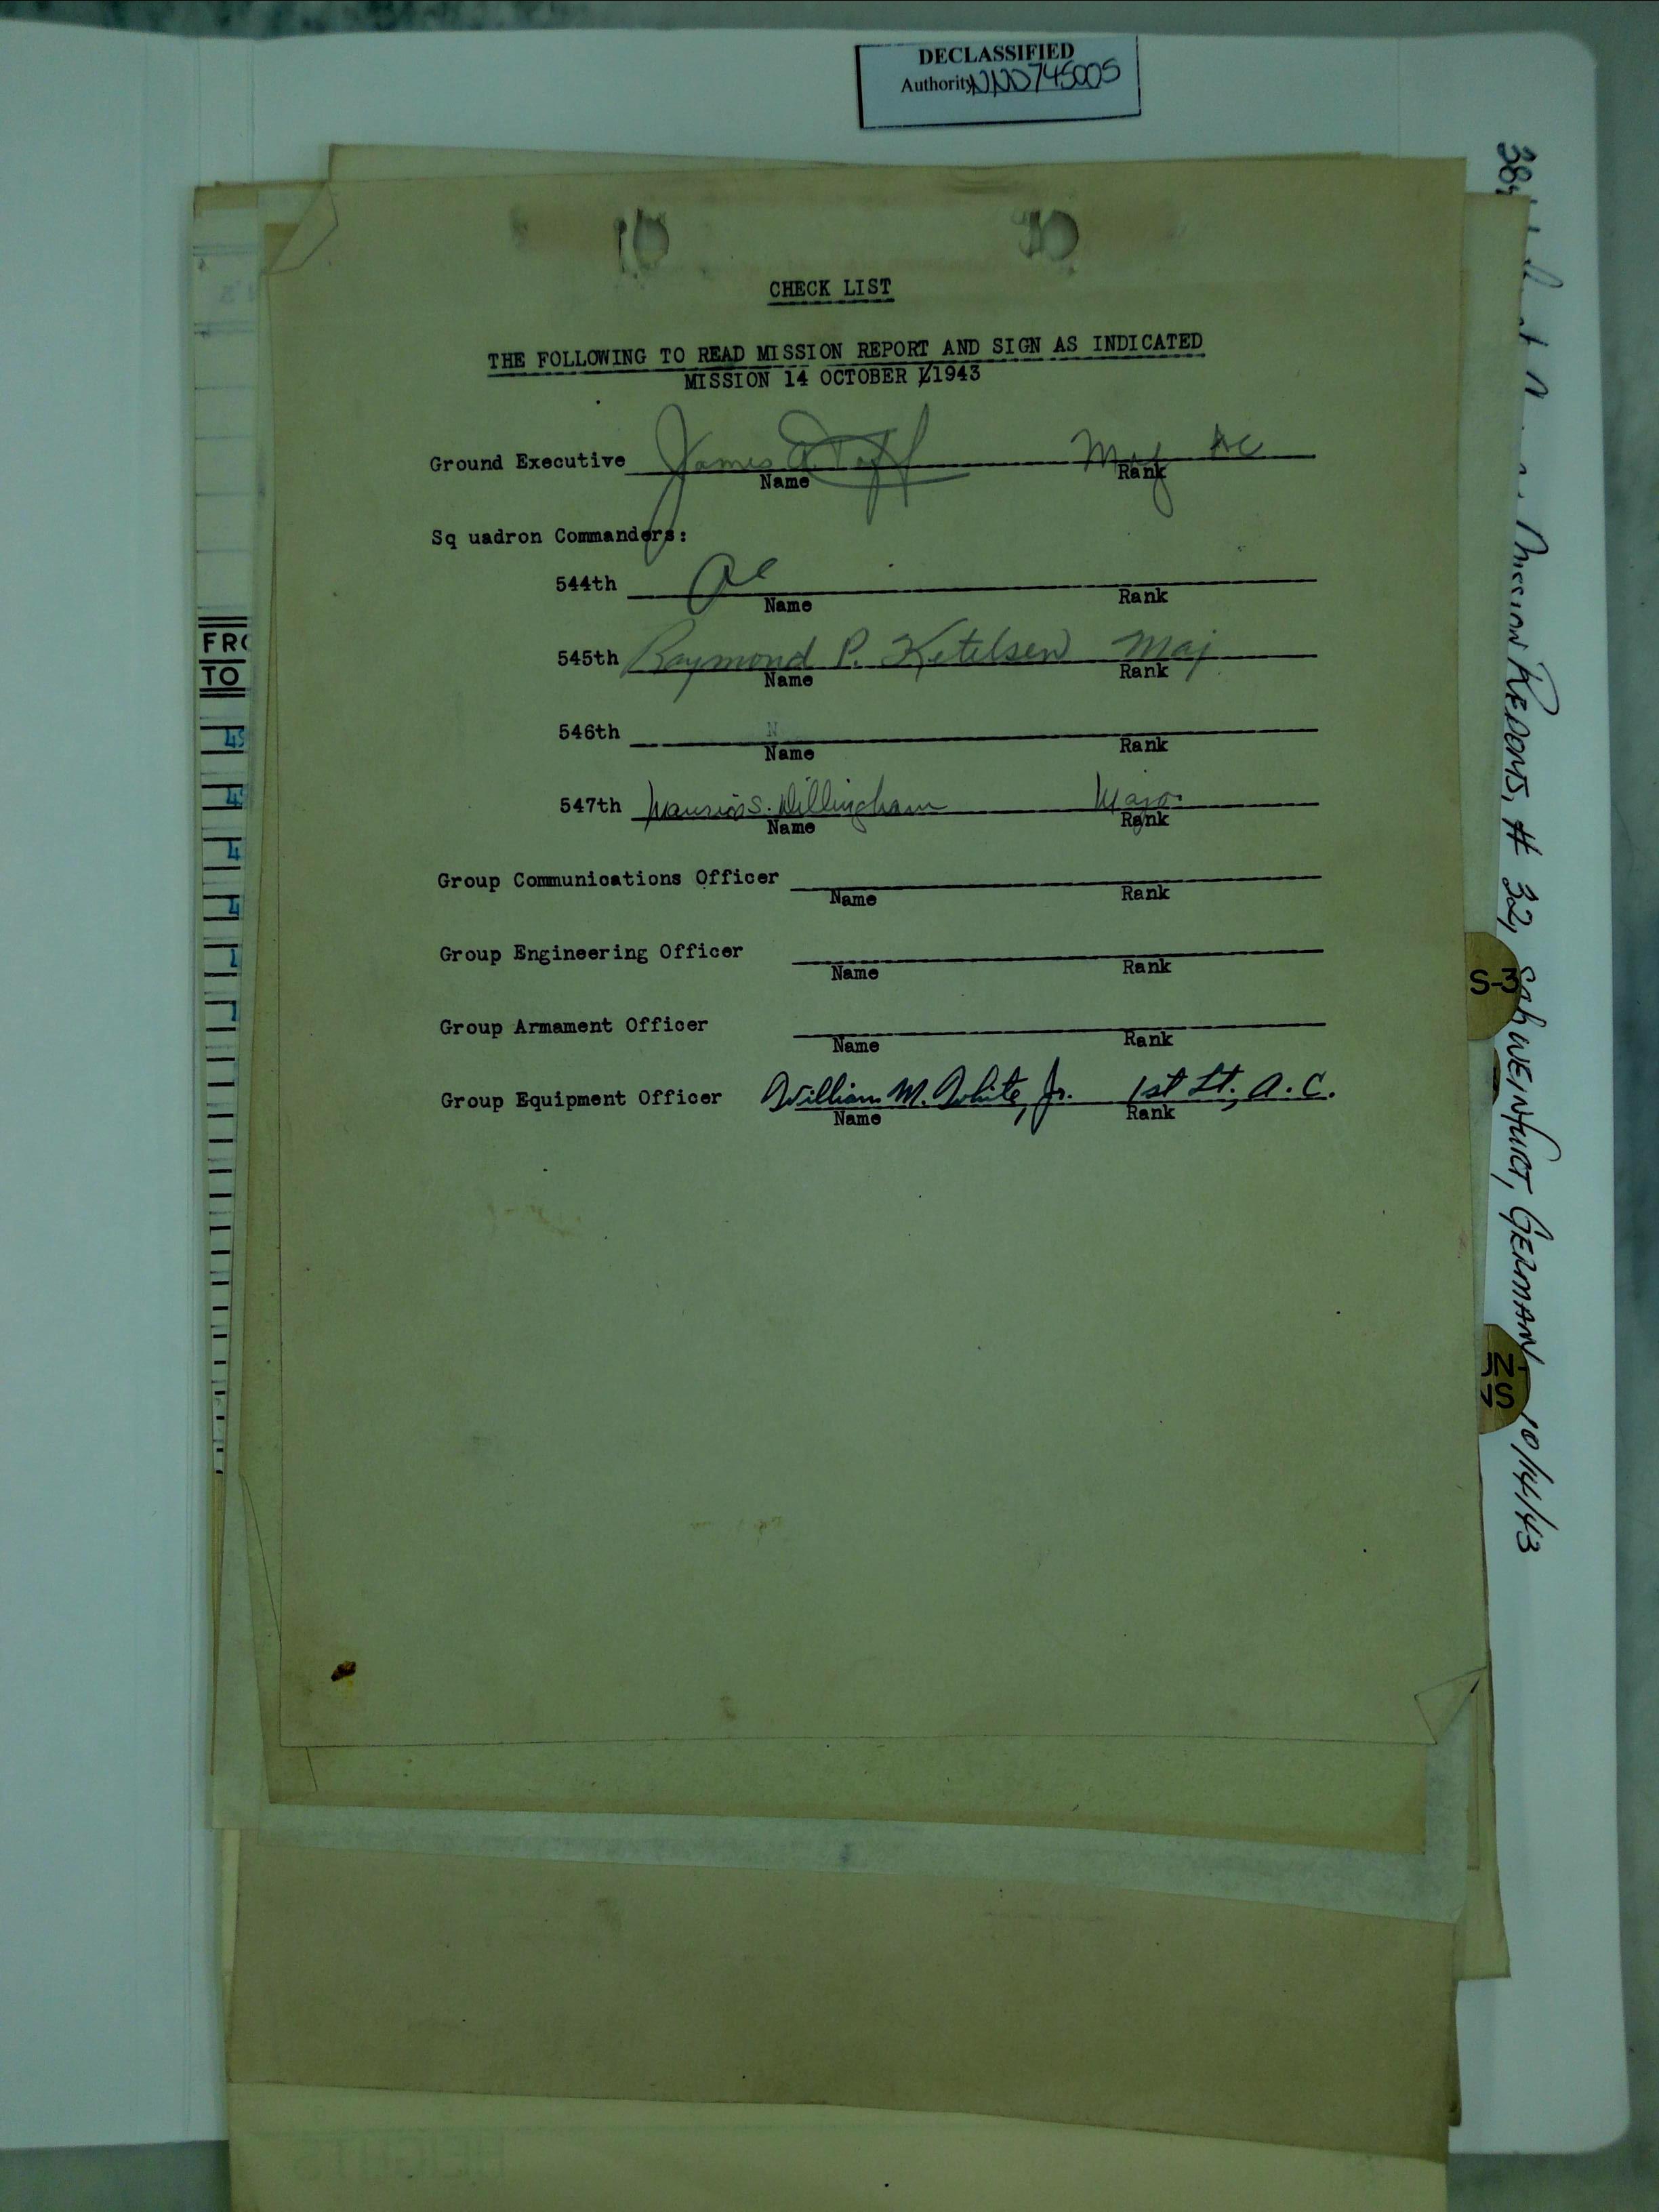 DECLASSIFIED
Authority NND745005
CHECK LIST
THE FOLLOWING TO READ MISSION REPORT AND SIGN AS INDICATED
MISSION 14 OCTOBER 1943
Ground Executive James Maj AC
Name Rank
Sq uadron Commanders:
544th
Name Rank
545th Raymond P. Ketelsen Maj
Name Rank
546th
N
Name Rank
547th S. Dillingham Major
Name Rank
Group Communications Officer
Name Rank
Group Engineering Officer
Name Rank
Group Armament Officer
Name Rank
Group Equipment Officer William M. White, Jr. 1st Lt., A.C.
Name Rank
FRO
TO
S-3
Mission Reports, # 32, Schweinfurt, German 10/14/43